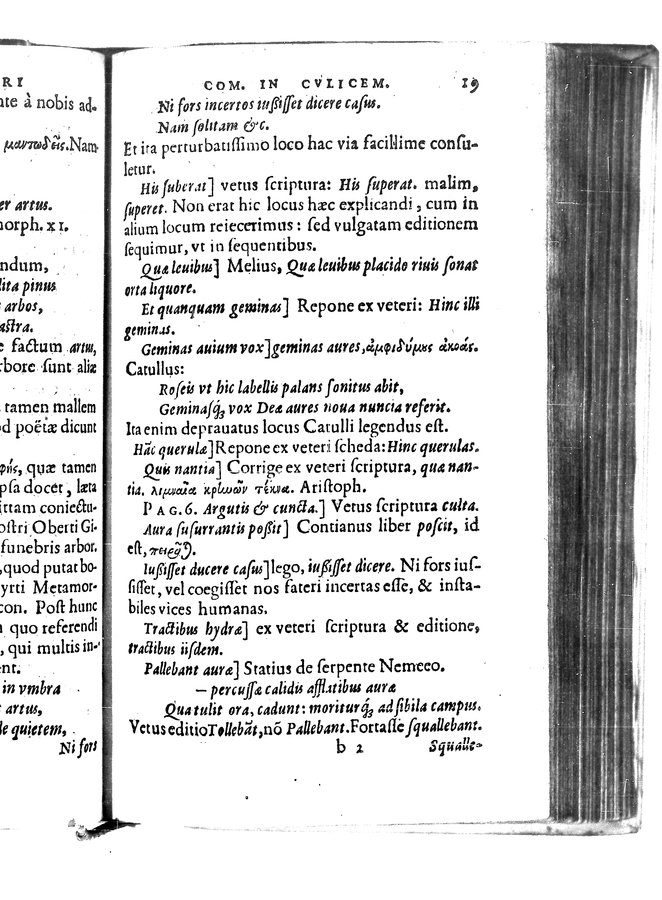 RI
nte à nobis ad-
μαντωδεῖς. Nam
er artus.
morph. XI.
ndum,
lita pinus
arbos,
astra.
e factum artus,
rbore sunt aliæ
tamen mallem
od poëtæ dicunt
quæ tamen
psa docet, læta
ittam coniectu-
ostri Oberti Gi-
funebris arbor.
, quod putat bo-
yrti Metamor-
con. Post hunc
n quo referendi
, qui multis in-
ent.
in vmbra
artus,
le quietem,
Ni fors
COM. IN CVLICEM. 19
Ni fors incertos iußisset dicere casus.
Nam solitam &c.
Et ita perturbatissimo loco hac via facillime consu-
letur.
His suberat] vetus scriptura: His superat. malim,
superet. Non erat hic locus hæc explicandi, cum in
alium locum reiecerimus: sed vulgatam editionem
sequimur, vt in sequentibus.
Qua leuibus] Melius, Qua leuibus placido riuis sonat
orta liquore.
Et quanquam geminas] Repone ex veteri: Hinc illi
geminas.
Geminas auium vox] geminas aures, ἀμφιδύμους ἀκοάς.
Catullus:
Roseis vt hic labellis palans sonitus abit,
Geminasq́; vox Deæ aures noua nuncia referit.
Ita enim deprauatus locus Catulli legendus est.
Hãc querulæ] Repone ex veteri scheda: Hinc querulas.
Quis nantia] Corrige ex veteri scriptura, quæ nan-
tia. λιμναῖα κρηνῶν τέκνα. Aristoph.
PAG. 6. Argutis & cuncta.] Vetus scriptura culta.
Aura susurrantis poßit] Contianus liber poscit, id
est,
Iußisset ducere casus] lego, iußisset dicere. Ni fors ius-
sisset, vel coegisset nos fateri incertas esse, & insta-
biles vices humanas.
Tractibus hydræ] ex veteri scriptura & editione,
tractibus iisdem.
Pallebant auræ] Statius de serpente Nemeæo.
— percussæ calidis afflatibus auræ
Qua tulit ora, cadunt: moriturq́; ad sibila campus.
Vetus editio Tollebãt, nõ Pallebant. Fortasse squallebant.
b 2 Squalle-